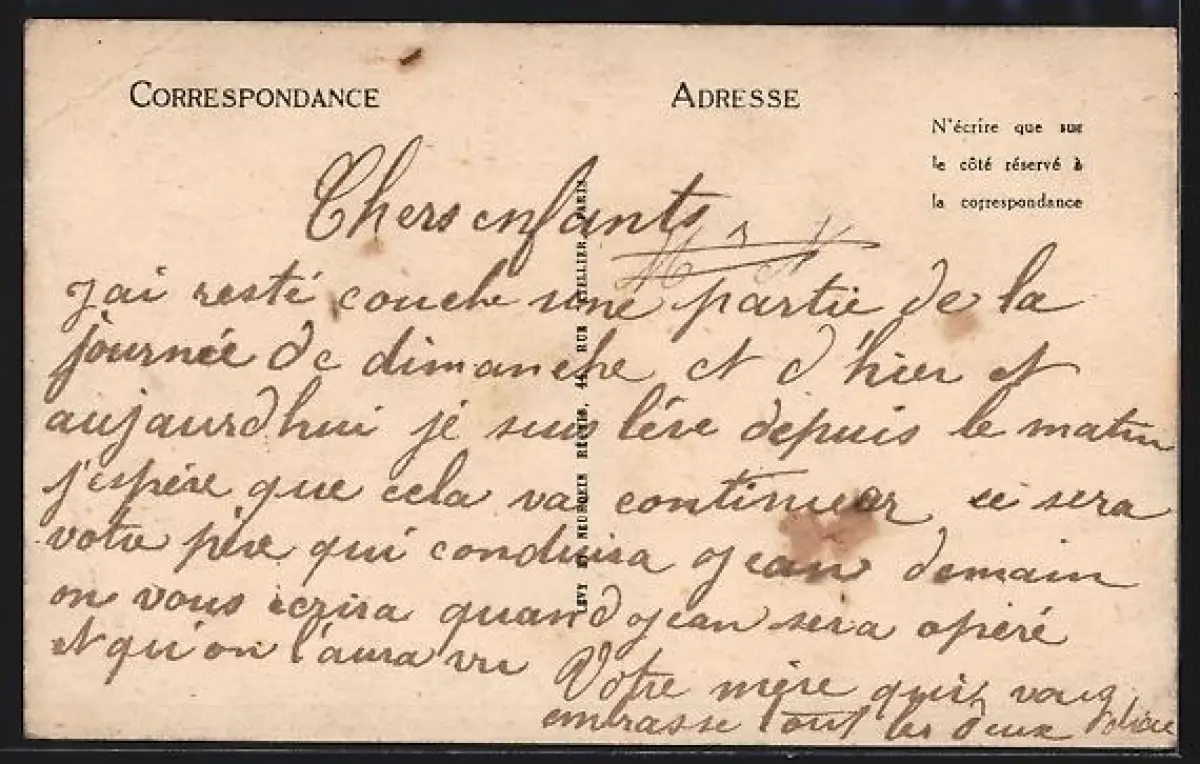 CORRESPONDANCE
ADRESSE
N'écrire que sur
le côté réservé à
la correspondance
Chers enfants
j'ai resté couché une partie de la
journée de dimanche et d'hier et
aujaurdhui je suis léve depuis le matin
j'espére que cela va continuer ce sera
votre pére qui conduira Jean demain
on vous écrira quand Jean sera opéré
et qu'on l'aura vu
Votre mére qui vous
embrasse tout les deux
LEVY ET NEURDEIN RÉUNIS, 44, RUE LETELLIER, PARIS